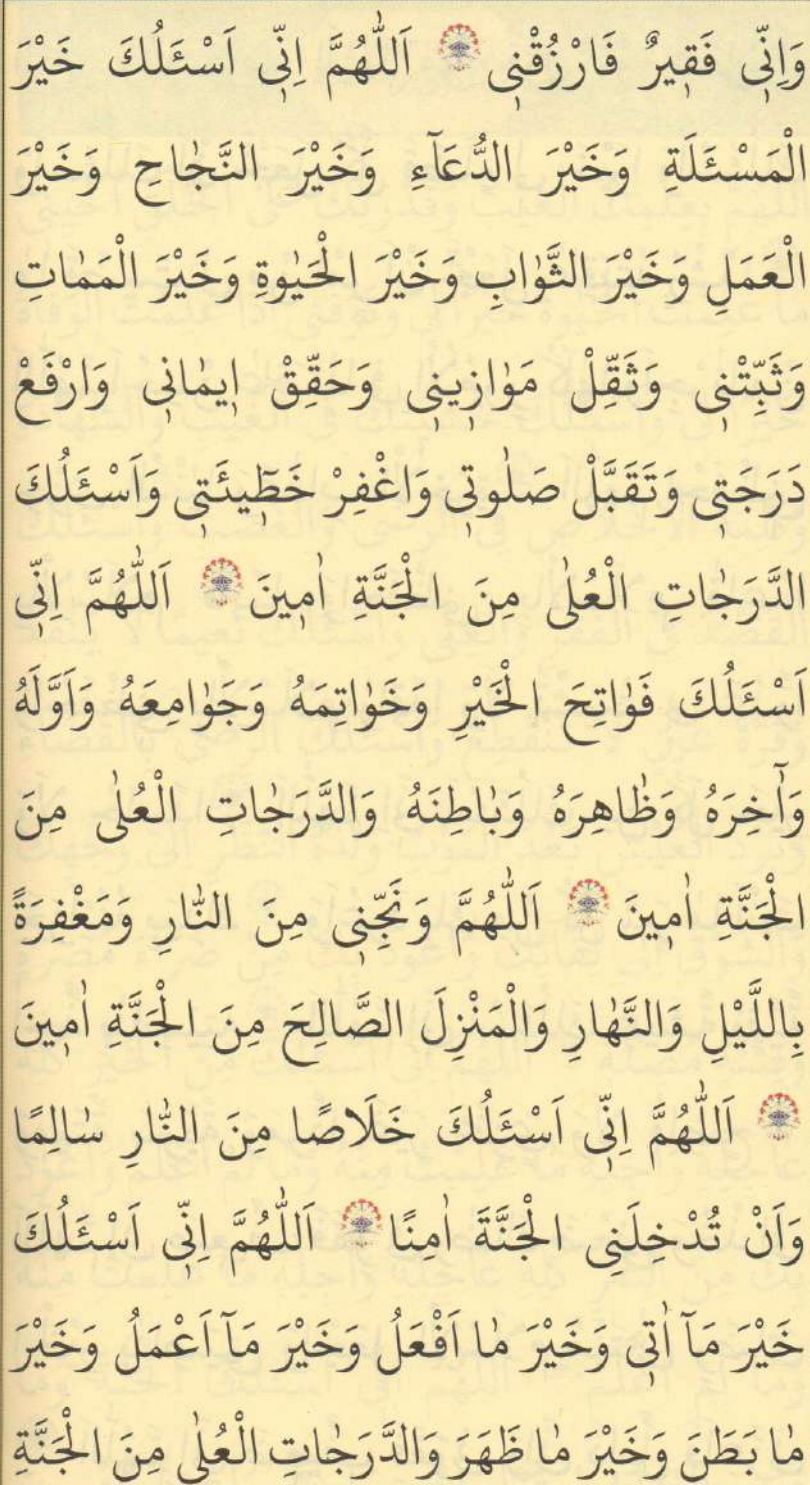 وَاِنّٖى فَقٖيرٌ فَارْزُقْنٖى ۞ اَللّٰهُمَّ اِنّٖى اَسْئَلُكَ خَيْرَ
الْمَسْئَلَةِ وَخَيْرَ الدُّعَآءِ وَخَيْرَ النَّجٰاحِ وَخَيْرَ
الْعَمَلِ وَخَيْرَ الثَّوٰابِ وَخَيْرَ الْحَيٰوةِ وَخَيْرَ الْمَمٰاتِ
وَثَبِّتْنٖى وَثَقِّلْ مَوٰازٖينٖى وَحَقِّقْ اٖيمٰانٖى وَارْفَعْ
دَرَجَتٖى وَتَقَبَّلْ صَلٰوتٖى وَاغْفِرْ خَطٖٓيئَتٖى وَاَسْئَلُكَ
الدَّرَجٰاتِ الْعُلٰى مِنَ الْجَنَّةِ اٰمٖينَ ۞ اَللّٰهُمَّ اِنّٖى
اَسْئَلُكَ فَوٰاتِحَ الْخَيْرِ وَخَوٰاتِمَهُ وَجَوٰامِعَهُ وَاَوَّلَهُ
وَاٰخِرَهُ وَظٰاهِرَهُ وَبٰاطِنَهُ وَالدَّرَجٰاتِ الْعُلٰى مِنَ
الْجَنَّةِ اٰمٖينَ ۞ اَللّٰهُمَّ وَنَجِّنٖى مِنَ النّٰارِ وَمَغْفِرَةً
بِاللَّيْلِ وَالنَّهٰارِ وَالْمَنْزِلَ الصَّالِحَ مِنَ الْجَنَّةِ اٰمٖينَ
۞ اَللّٰهُمَّ اِنّٖى اَسْئَلُكَ خَلَاصًا مِنَ النّٰارِ سٰالِمًا
وَاَنْ تُدْخِلَنِى الْجَنَّةَ اٰمِنًا ۞ اَللّٰهُمَّ اِنّٖى اَسْئَلُكَ
خَيْرَ مَآ اٰتٖى وَخَيْرَ مٰا اَفْعَلُ وَخَيْرَ مَآ اَعْمَلُ وَخَيْرَ
مٰا بَطَنَ وَخَيْرَ مٰا ظَهَرَ وَالدَّرَجٰاتِ الْعُلٰى مِنَ الْجَنَّةِ